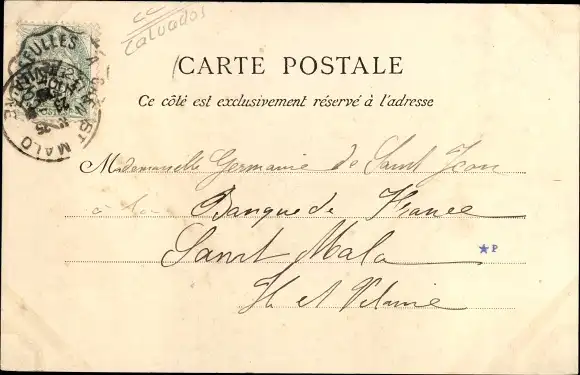 cc
Calvados
CARTE POSTALE
Ce côté est exclusivement réservé à l'adresse
ST MALO
Mademoiselle Germaine de Saint Jean
à la Banque de France
Saint Malo
P
Ill et Vilaine